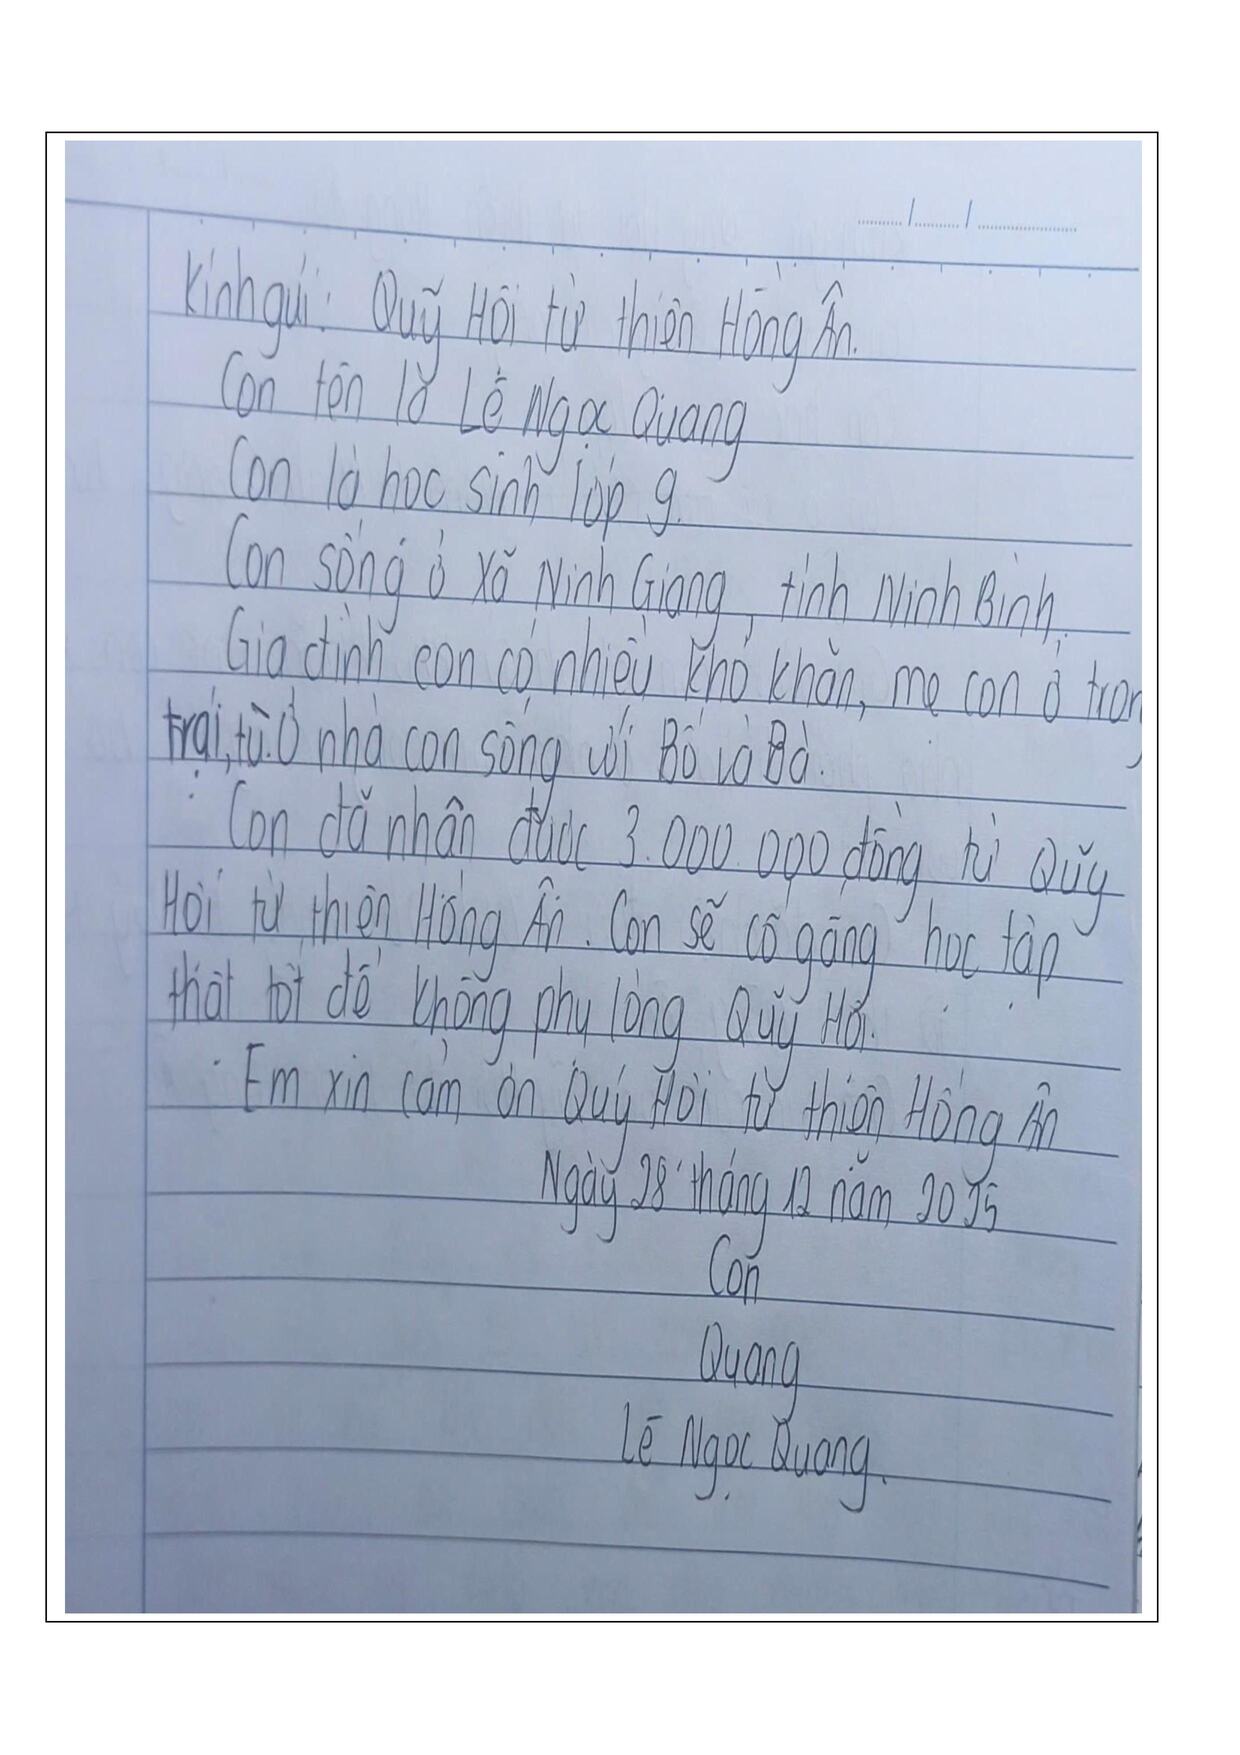 Kính gửi: Quỹ Hội từ thiện Hồng Ân.
Con tên là Lê Ngọc Quang
Con là học sinh lớp 9.
Con sống ở xã Ninh Giang, tỉnh Ninh Bình,
Gia đình con có nhiều khó khăn, mẹ con ở tron
trại, tù. Ở nhà con sống với Bố và Bà.
Con đã nhận được 3.000.000 đồng từ Quỹ
Hội từ thiện Hồng Ân. Con sẽ cố gắng học tập
thật tốt để không phụ lòng Quỹ Hội.
Em xin cảm ơn Quý Hội từ thiện Hồng Ân
Ngày 28 tháng 12 năm 2025
Con
Quang
Lê Ngọc Quang.